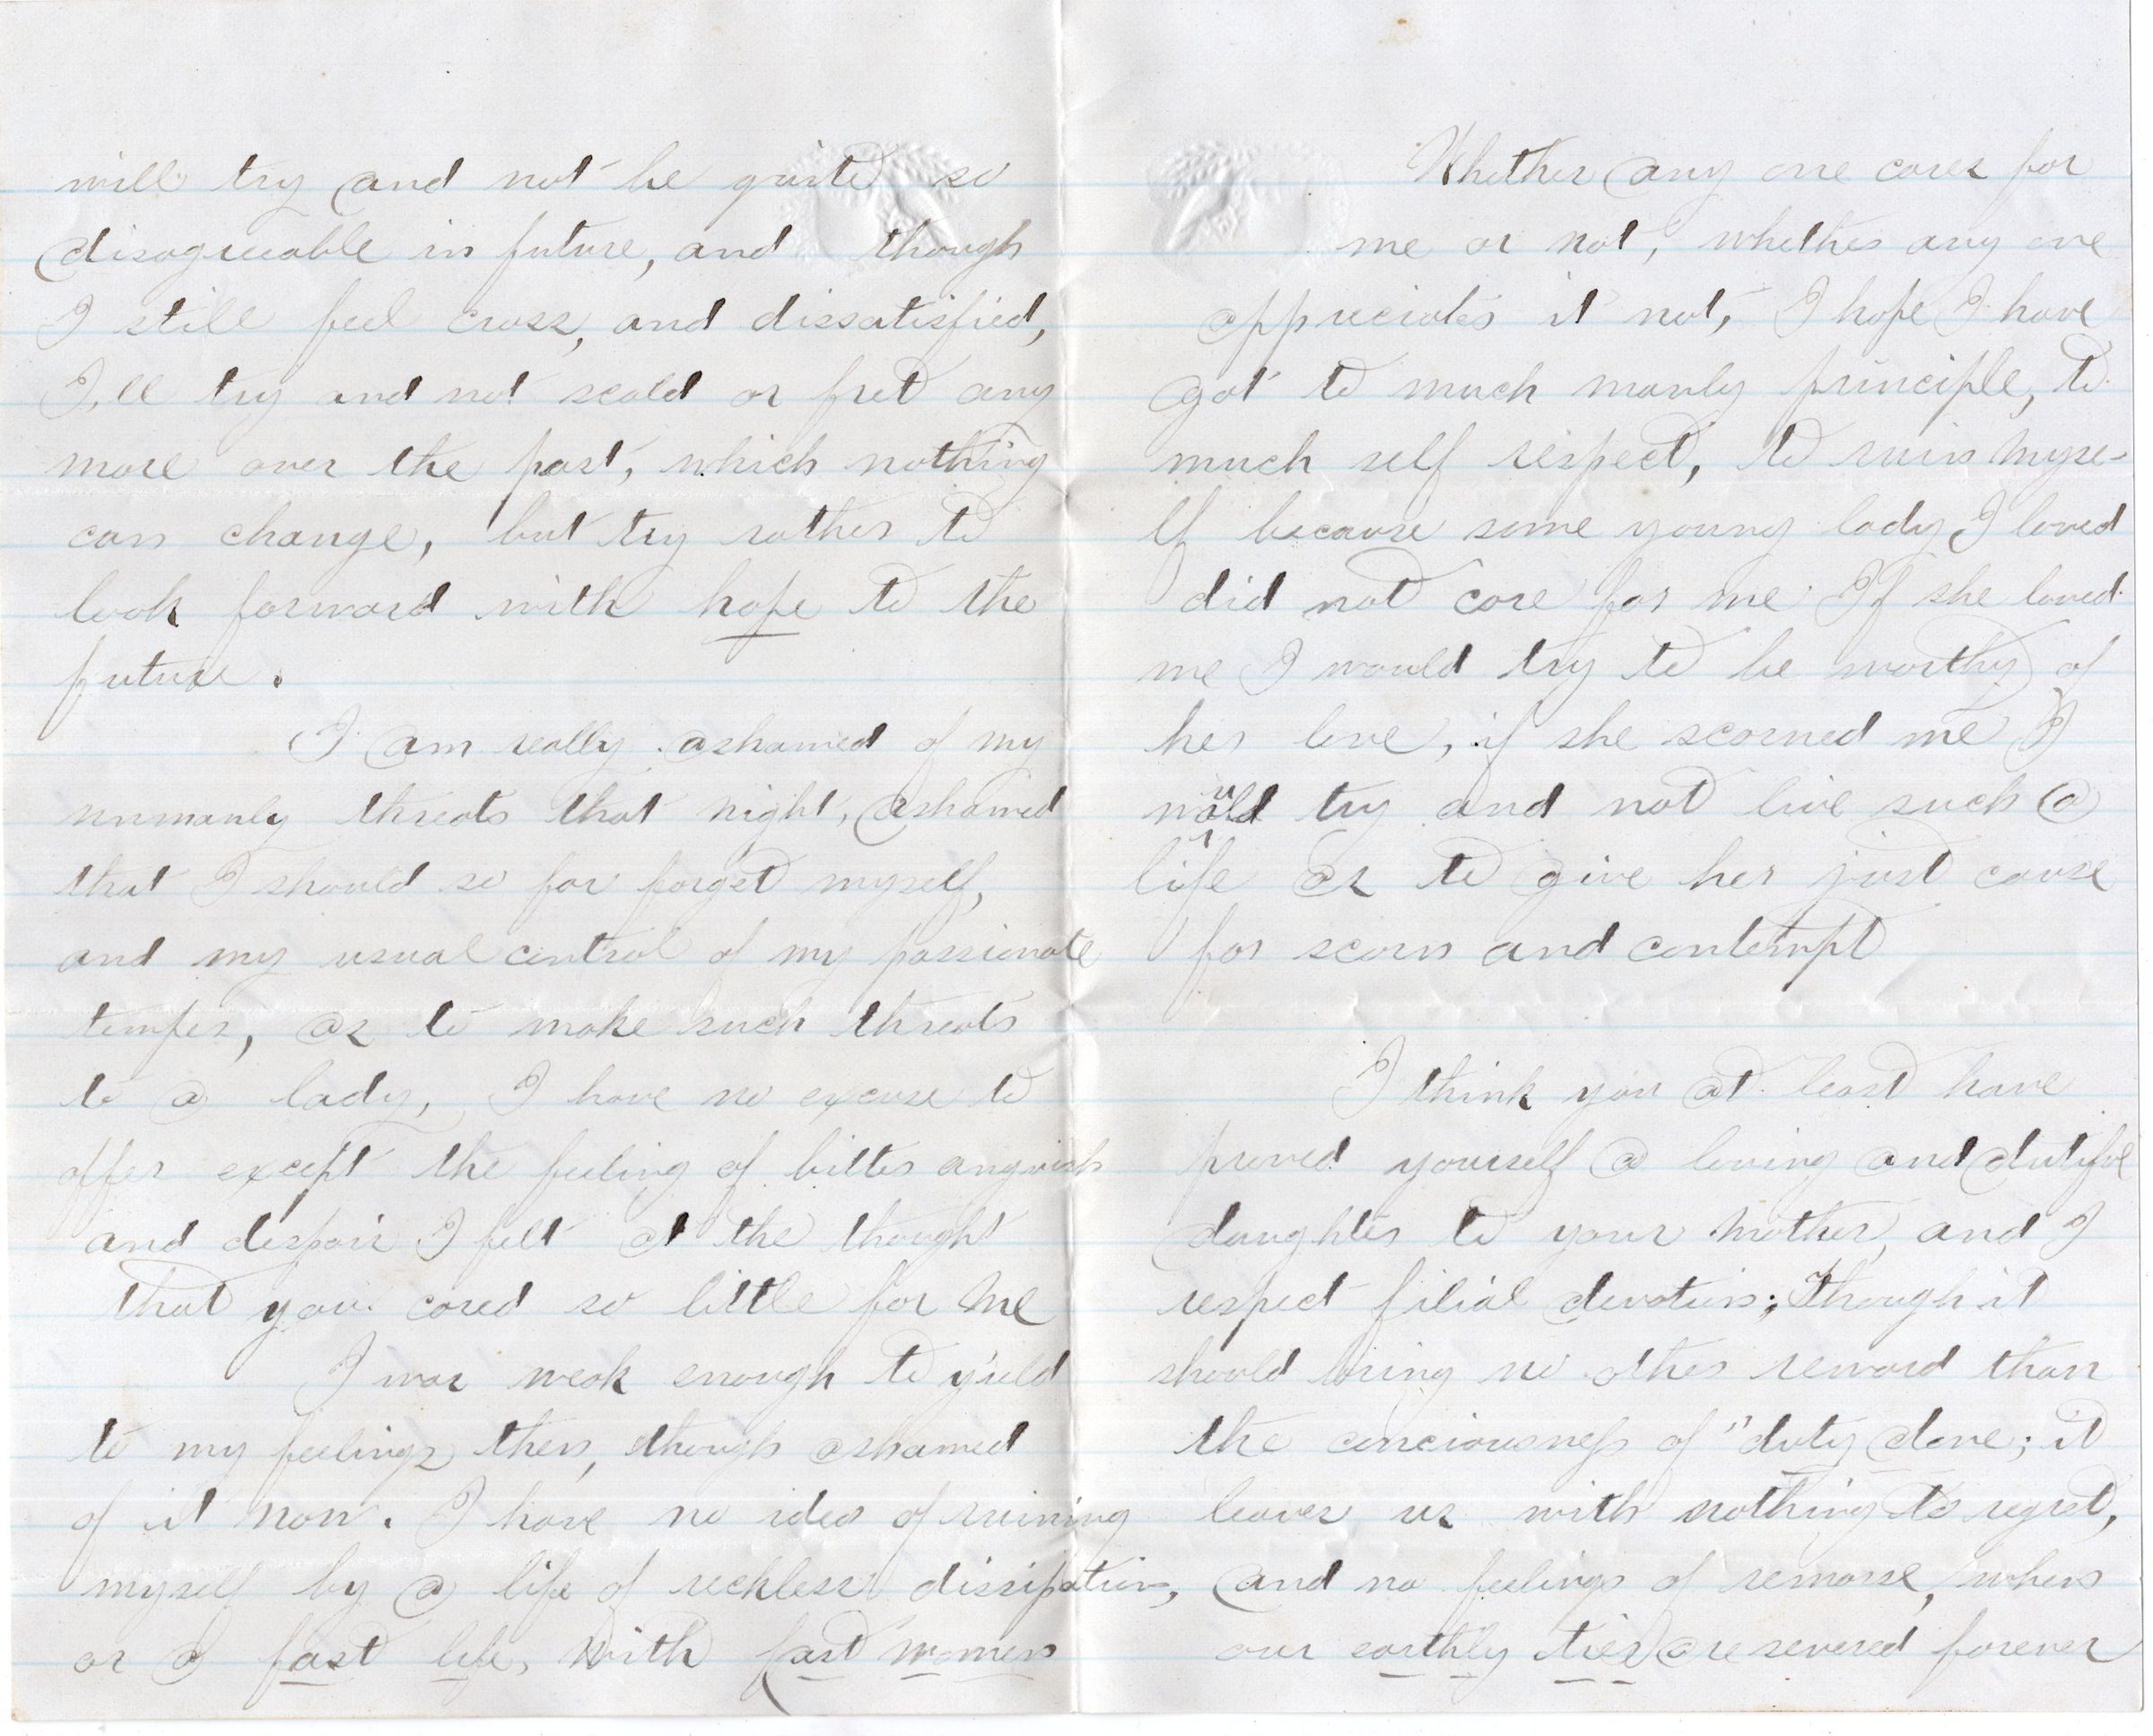 will try and not be quite so
disagreeable in future, and though
I still feel cross, and dissatisfied,
I,ll try and not scold or fret any
more over the past, which nothing
can change, but try rather to
look forward with hope to the
future.
I am really ashamed of my
unmanly threats that night, ashamed
that I should so far forget myself,
and my usual control of my passionate
temper, as to make such threats
to a lady, I have no excuse to
offer except the feeling of bitter anguish
and despair I felt at the thought
that you cared so little for me
I was weak enough to yield
to my feelings then, though ashamed
of it now. I have no idea of ruining
myself by a life of reckless dissipation,
or a fast life, with fast women
Whether any one cares for
me or not, whether any one
appreciates it not, I hope I have
got to much manly principle, to
much self respect, to ruin myse-
lf because some young lady I loved
did not care for me If she loved
me I would try to be worthy of
her love, if she scorned me I
would try and not live such a
life as to give her just cause
for scorn and contempt
I think you at least have
proved yourself a loving and dutiful
daughter to your mother, and I
respect filial devotion; though it
should bring no other reward than
the conciousness of "duty done; it
leaves us with nothing to regret,
and no feelings of remorse, when
our earthly ties are severed forever